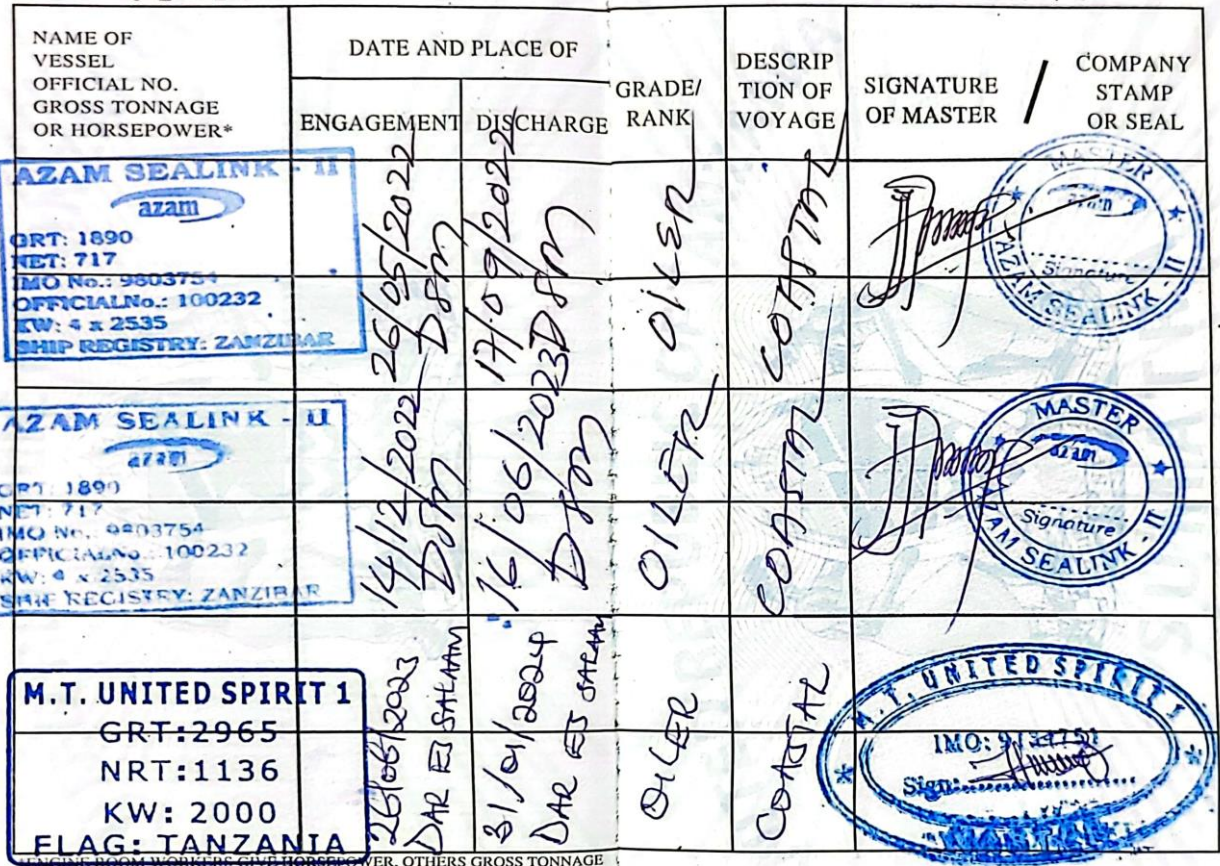 NAME OF
VESSEL
OFFICIAL NO.
GROSS TONNAGE
OR HORSEPOWER*
DATE AND PLACE OF
ENGAGEMENT
DISCHARGE
GRADE/
RANK
DESCRIP
TION OF
VOYAGE
SIGNATURE
OF MASTER
/
COMPANY
STAMP
OR SEAL
AZAM SEALINK - II
azam
GRT: 1890
NET: 717
IMO No.: 9803754
OFFICIALNo.: 100232
KW: 4 x 2535
SHIP REGISTRY: ZANZIBAR
26/05/2022
DSM
17/09/2022
DSM
OILER
COASTAL
MASTER
azam
Signature
AZAM SEALINK - II
AZAM SEALINK - II
azam
GRT: 1890
NET: 717
IMO No.: 9803754
OFFICIALNo.: 100232
KW: 4 x 2535
SHIP REGISTRY: ZANZIBAR
14/12/2022
DSM
16/06/2023
DSM
OILER
COASTAL
MASTER
azam
Signature
AZAM SEALINK - II
M.T. UNITED SPIRIT 1
GRT:2965
NRT:1136
KW: 2000
FLAG: TANZANIA
DAR ES SALAAM
DAR ES SALAAM
OILER
COASTAL
M.T. UNITED SPIRIT 1
Sign:
*ENGINE ROOM WORKERS GIVE HORSEPOWER, OTHERS GROSS TONNAGE